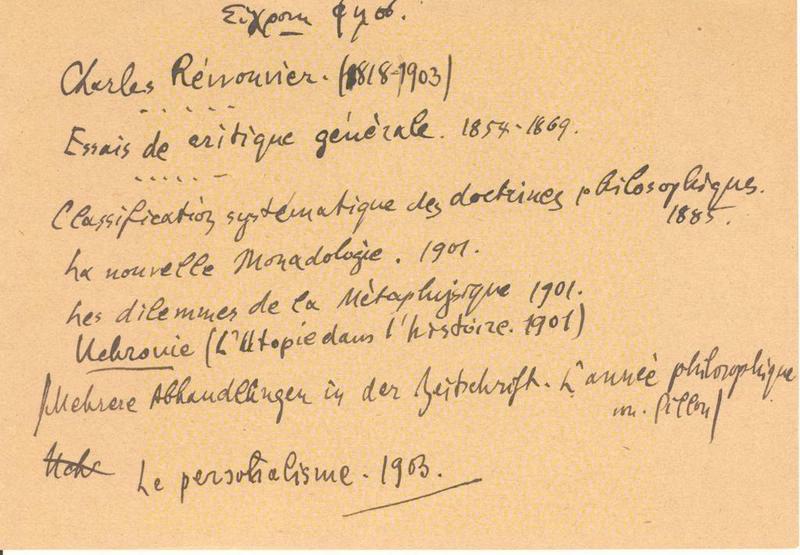 Charles Rénouvier. (1818-1903)
Essais de critique générale. 1854-1869.
Classification systématique des doctrines philosophiques.
1885.
La nouvelle Monadologie. 1901.
Les dilemmes de la Métaphysique 1901.
Uchronie (L'Utopie dans l'histoire. 1901)
(Mehrere Abhandlungen in der Zeitschrift. L'année philosophique
Pillon)
Uchr
Le personalisme. 1903.